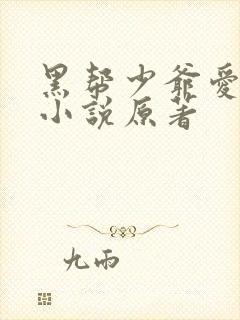 黑帮少爷爱
小说原著
九雨